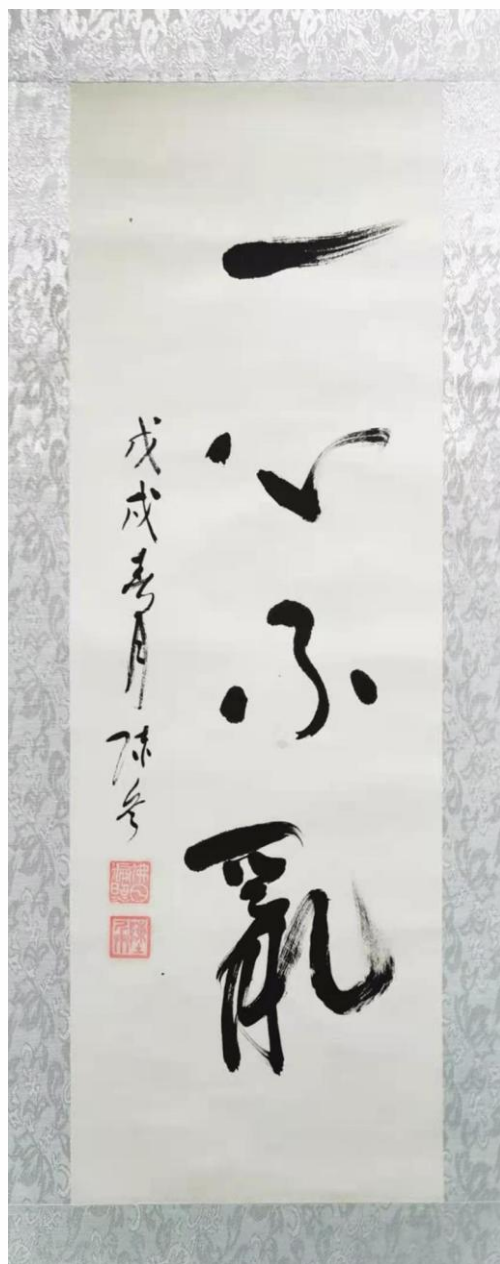 一心不亂
戊戌春月 陳